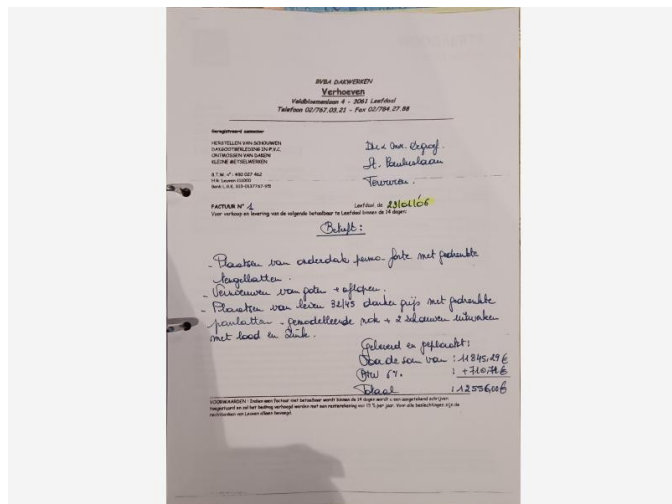 BVBA DAKWERKEN
Verhoeven
Veldbloemenlaan 4 - 3061 Leefdaal
Telefoon 02/767.03.21 - Fax 02/784.27.88
Geregistreerd aannemer
HERSTELLEN VAN SCHOUWEN
DAKGOOTBEKLEDING IN P.V.C.
ONTMOSSEN VAN DAKEN
KLEINE METSELWERKEN
B.T.W. n° : 480 027 462
Dhr & Mvr.
St. Pauluslaan
Tervuren.
FACTUUR N° 1
Leefdaal, de 23/01/06
Voor verkoop en levering van de volgende betaalbaar te Leefdaal binnen de 14 dagen:
Betreft:
- Plaatsen van onderdak permo-forte met gedrenkte
tengellatten.
- Vernieuwen van goten + aflopen.
- Plaatsen van leien 32/45 donker grijs met gedrenkte
panlatten - gemodelleerde nok + 2 schouwen uitwerken
met lood en zink.
Geleverd en geplaatst:
Voor de som van : 11845,29 €
BTW 6% : +710,71 €
Totaal : 12556,00 €
VOORWAARDEN : Indien een factuur niet betaalbaar wordt binnen de 14 dagen wordt u een aangetekend schrijven
toegestuurd en zal het bedrag verhoogd worden met een renterekening van 15 % per jaar. Voor alle betwistingen zijn de
rechtbanken van Leuven alleen bevoegd.